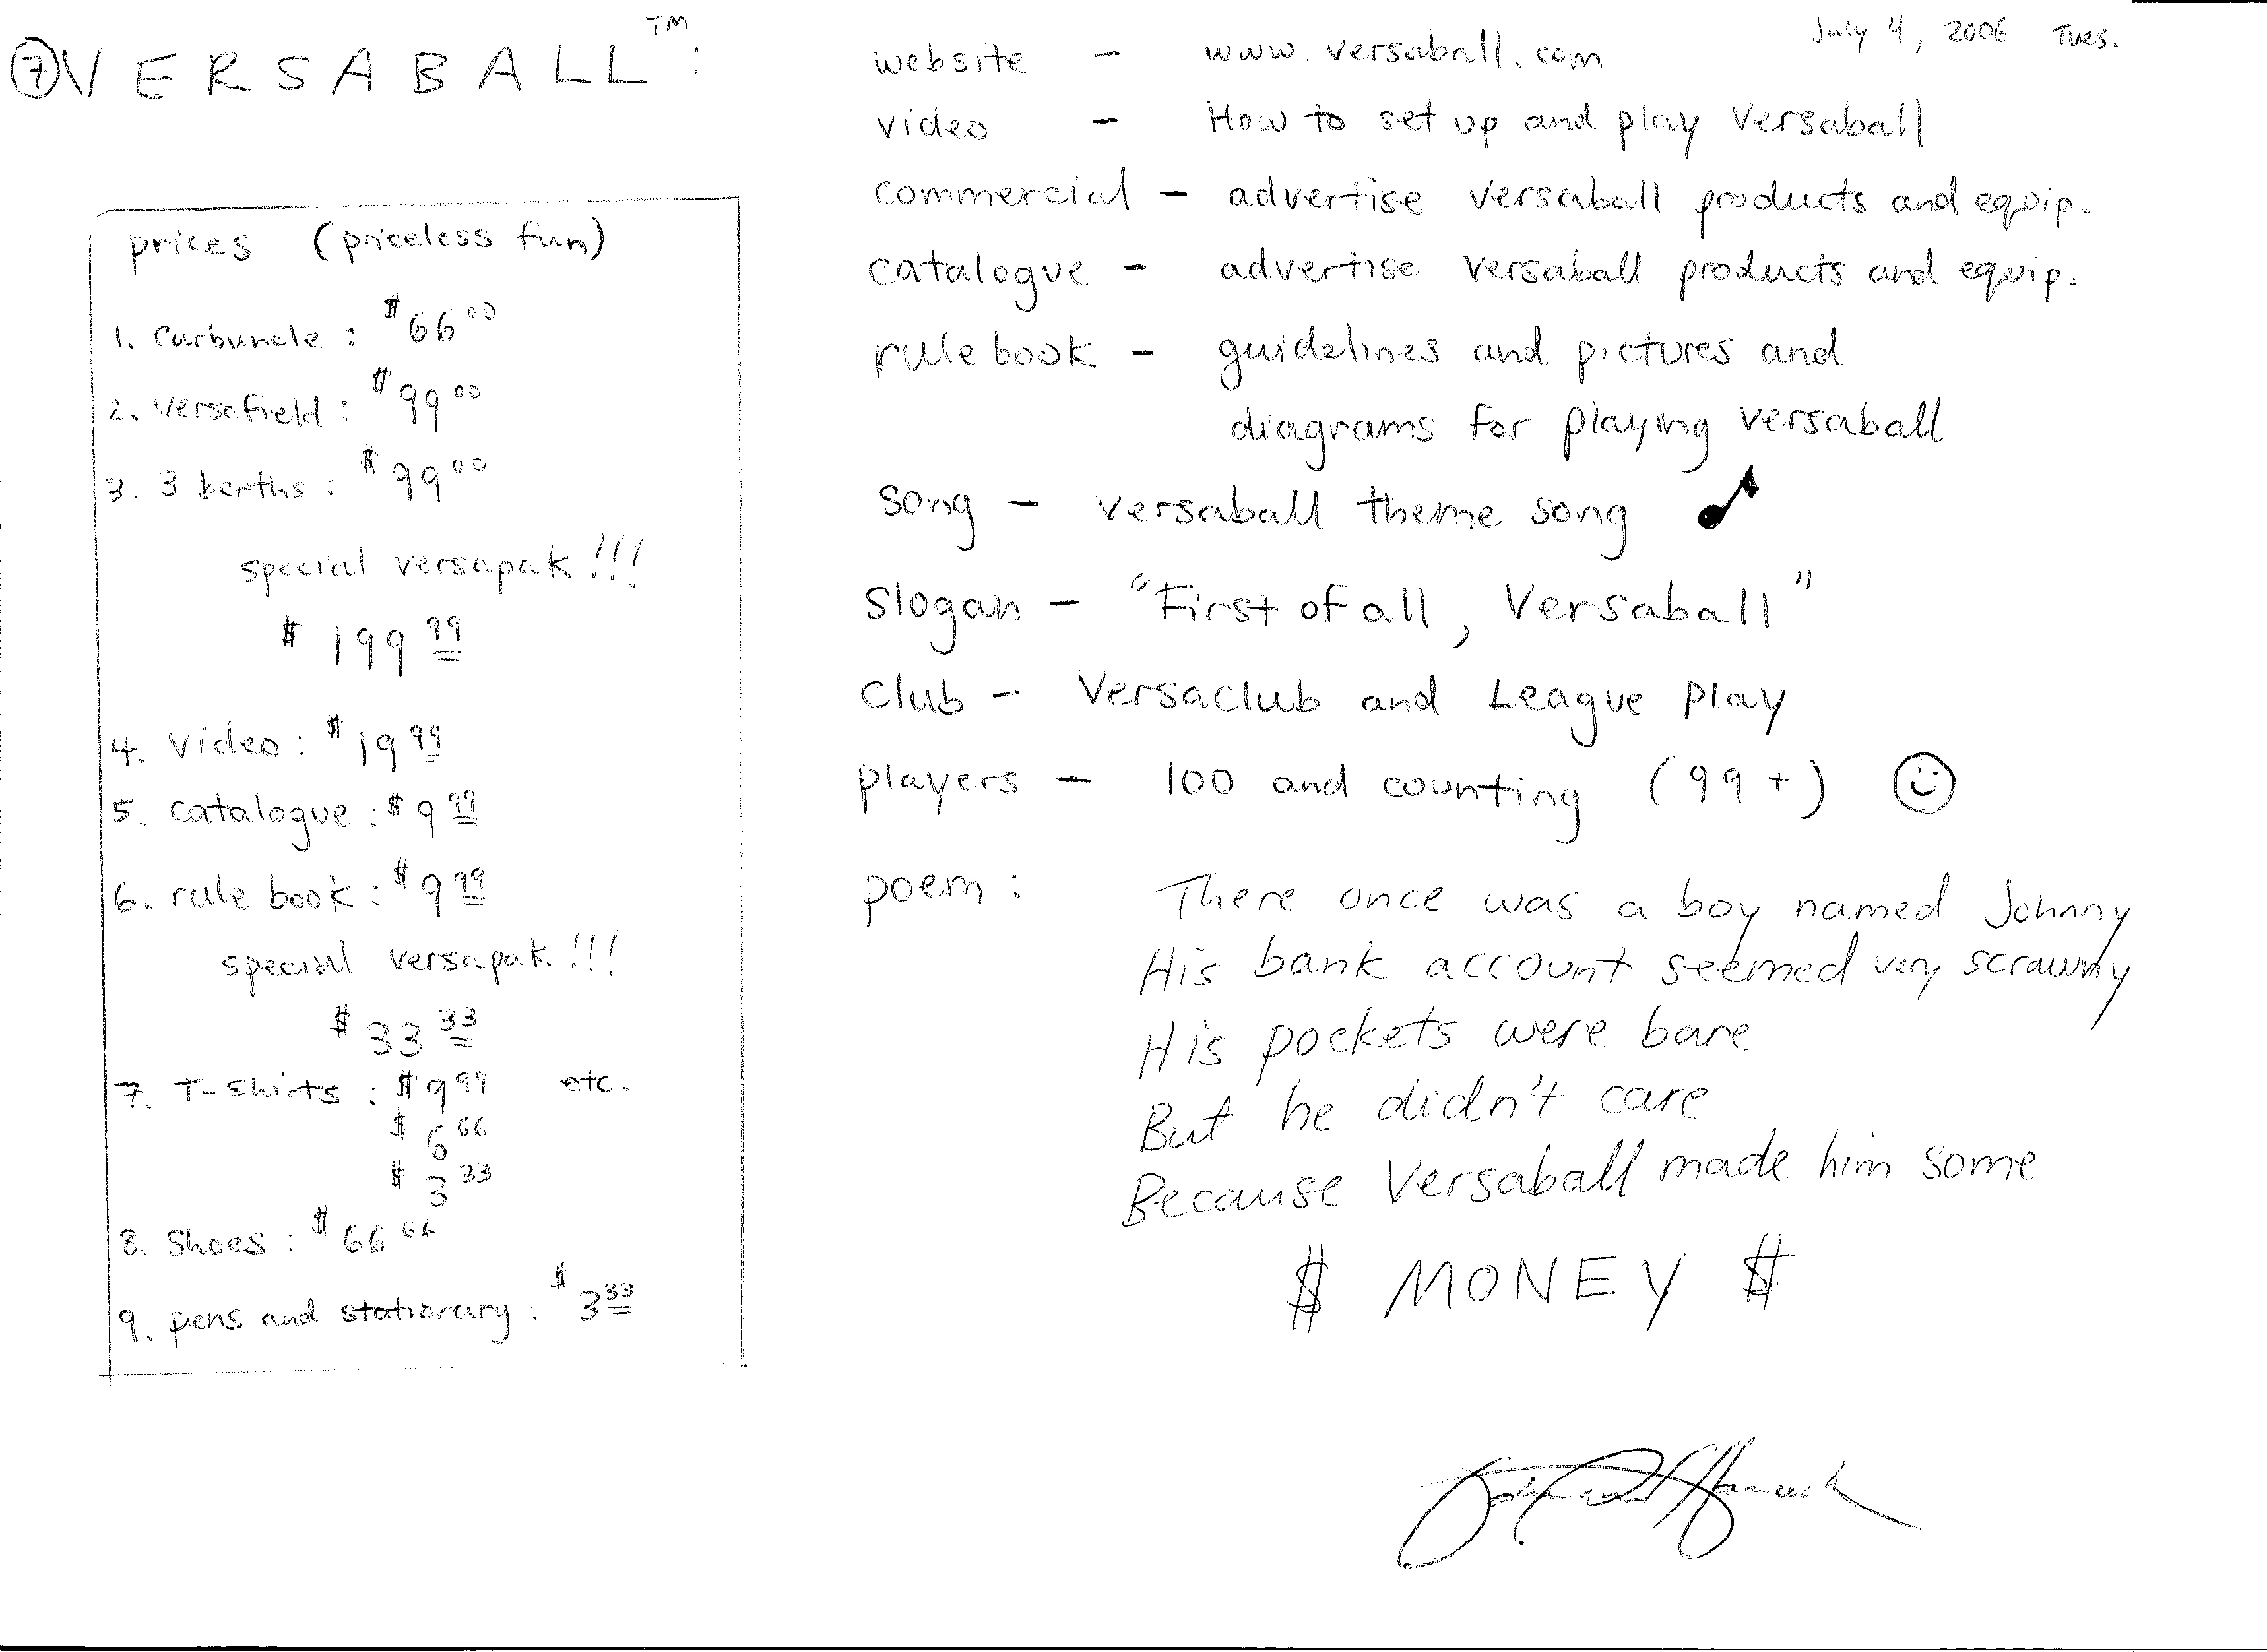 ⑦ VERSABALL™:
July 4, 2006 Tues.
prices (priceless fun)
1. Carbuncle : $66 00
2. versafield : $99 00
3. 3 berths : $99 00
special versapak!!!
$199 99
4. video : $19 99
5. catalogue : $9 99
6. rule book : $9 99
special versapak!!!
$33 33
7. T-Shirts : $9 99 etc.
$6 66
$3 33
8. Shoes : $66 66
9. pens and stationary : $3 33
website - www.versaball.com
video - How to set up and play Versaball
commercial - advertise versaball products and equip.
catalogue - advertise versaball products and equip.
rule book - guidelines and pictures and
diagrams for playing versaball
song - versaball theme song
slogan - "First of all, Versaball"
club - Versaclub and League Play
players - 100 and counting (99+)
poem : There once was a boy named Johnny
His bank account seemed very scrawny
His pockets were bare
But he didn't care
Because Versaball made him some
$ MONEY $